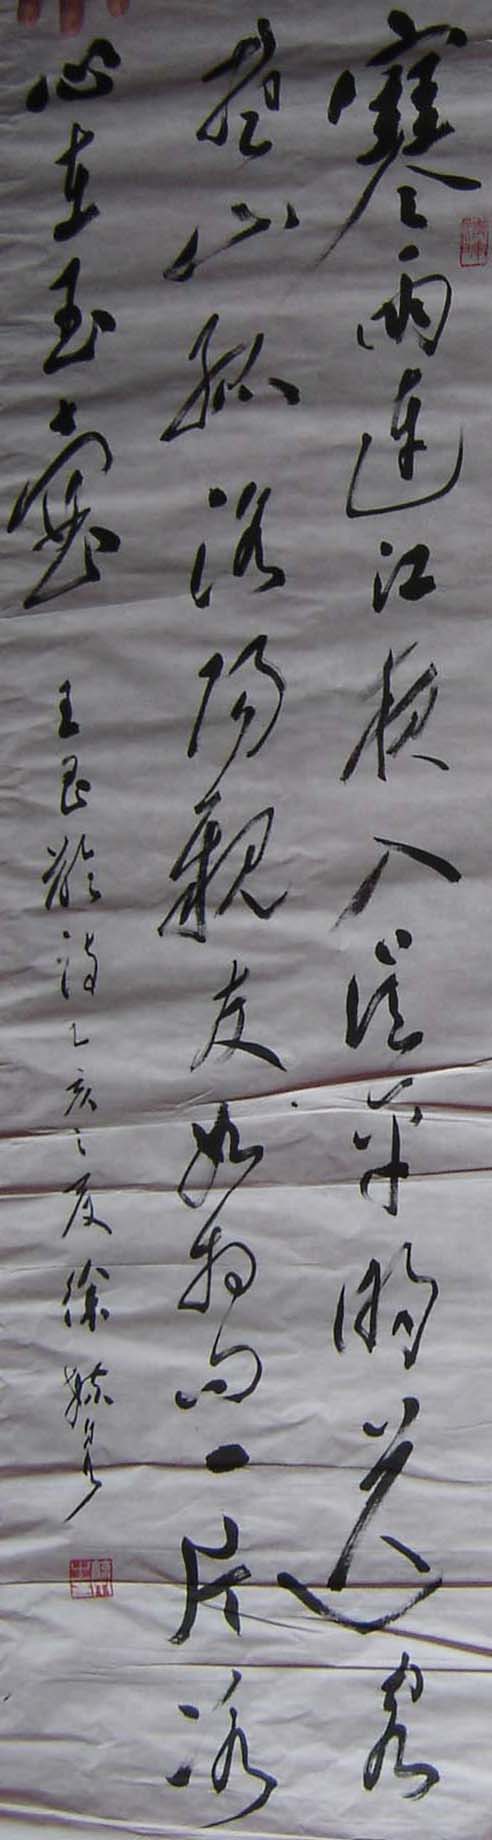 寒雨連江夜入吳平明送客
楚山孤洛陽親友如相問一片冰
心在玉壺
王昌齡詩乙亥之夏徐毓泉